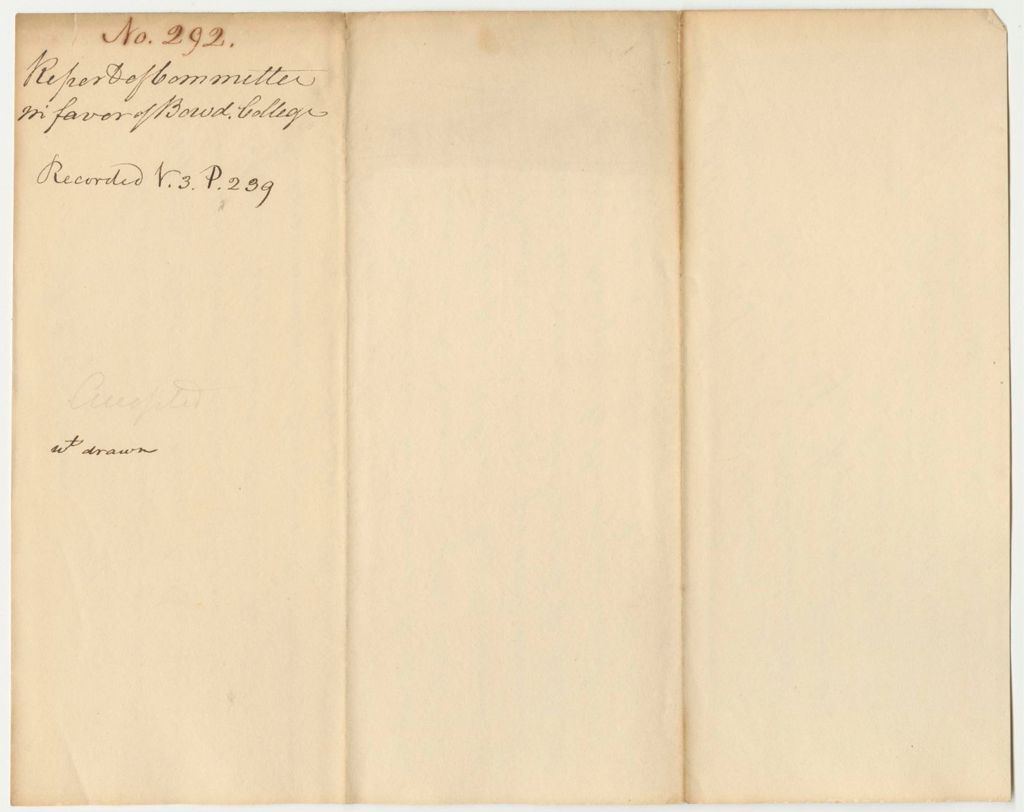 No. 292.
Report of Committee
in favor of Bowd. College
Recorded V. 3. P. 239
Accepted
wt drawn